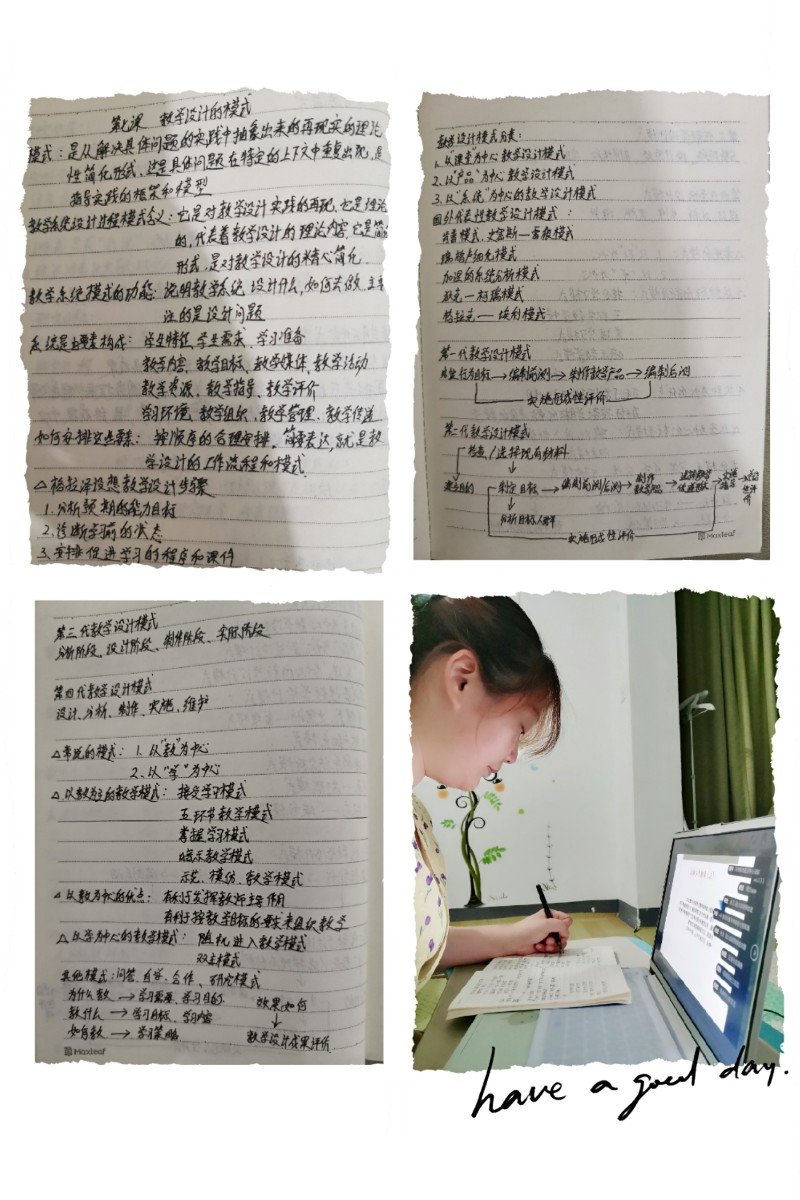 第七课 教学设计的模式
模式：是从解决具体问题的实践中抽象出来的再现实的理论
性简化形式，这是具体问题在特定的上下文中重复出现，是
指导实践的框架和模型
教学系统设计过程模式含义：它是对教学设计实践的再现，它是理论
的，代表着教学设计的理论内容，它是简
形式，是对教学设计的精心简化。
教学系统模式的功能：说明教学系统设计什么，如何去做，主
注的是设计问题
系统是由要素构成：学生特征、学生需求、学习准备
教学内容、教学目标、教学媒体、教学活动
教学资源、教学指导、教学评价
学习环境、教学组织、教学管理、教学传递
如何安排这些要素：按顺序的合理安排，简要表达，就是教
学设计的工作流程和模式
△格拉泽设想教学设计步骤
1.分析预期的能力目标
2.诊断学前的状态
3.安排促进学习的程序和课件
教学设计模式分类：
1.以"课堂"为中心教学设计模式
2.以"产品"为中心教学设计模式
3.以"系统"为中心的教学设计模式
国外代表性教学设计模式：
肯普模式、史密斯—雷根模式
加涅的系统分析模式
迪克—柯瑞模式
格拉克——埃利模式
第一代教学设计模式
行为目标→编制前测→制作教学产品→编制后测
实施形成性评价
第二代教学设计模式
检查/选择现有材料
建立目的 制定目标→编制前测/后测→制作教学产品→选择教学
分析目标人群
实施形成性评价
Maxleaf
第三代教学设计模式
分析阶段、设计阶段、制作阶段、实际阶段
第四代教学设计模式
设计、分析、制作、实施、维护
△常说的模式：1.以"教"为中心
2.以"学"为中心
△以教为主的教学模式：接受学习模式
五环节教学模式
掌握学习模式
暗示教学模式
示范、模仿、教学模式
△以教为中心的优点：有利于发挥教师主导作用
有利于按教学目标的要求来组织教学
△以学为中心的教学模式：随机进入教学模式
双主模式
其他模式：问答、自学、合作、研究模式
为什么教→学习需要、学习目的 效果如何
教什么→学习目标、学习内容 ↓
如何教→学习策略 教学设计成果评价
Maxleaf
have a good day.